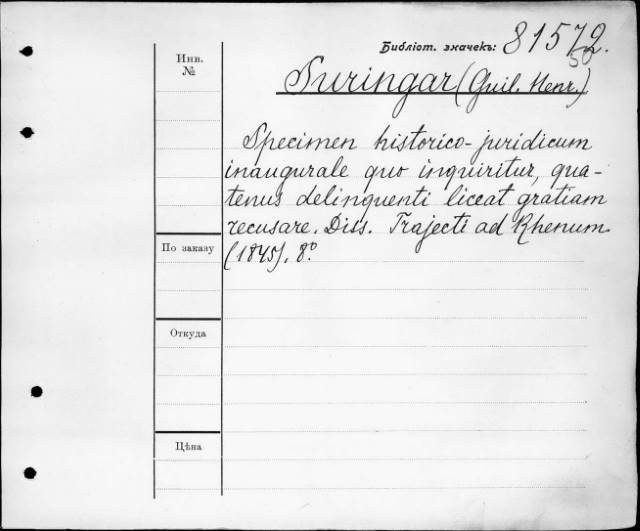 Библіот. значекъ: 81572.
50
Инв.
№
Suringar (Guil. Henr.)
Specimen historico-juridicum
inaugurale quo inquiritur, qua-
tenus delinquenti liceat gratiam
recusare. Diss. Trajecti ad Rhenum
(1845). 8°.
По заказу
Откуда
Цѣна